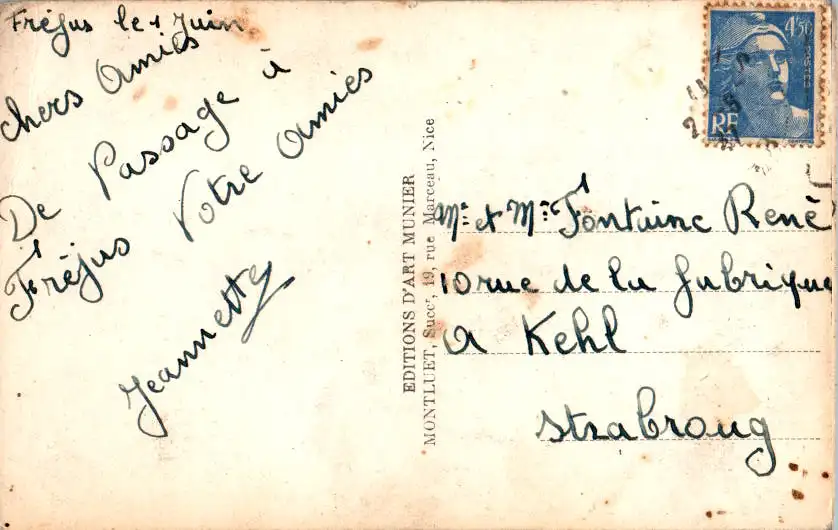 Fréjus le 1 Juin
chers Amies
De Passage à
Fréjus Votre Amies
Jeannette
EDITIONS D'ART MUNIER
MONTLUET, Succʳ, 19, rue Marceau, Nice
4f50
POSTES
RF
Mr et Mme Fontaine René
10 rue de la fabrique
A Kehl
Strabroug